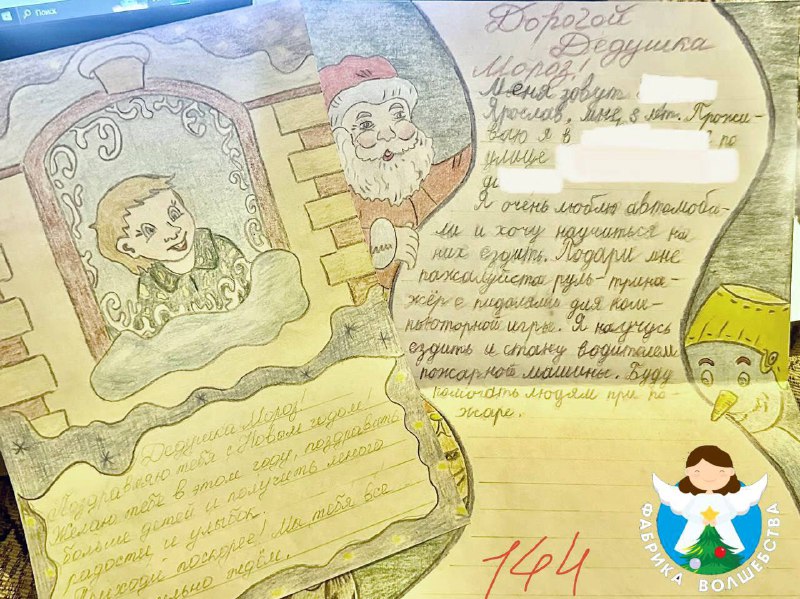 Поиск
Дорогой
Дедушка
Мороз!
Меня зовут
Ярослав, мне 8 лет. Прожи-
ваю я в по
улице
Я очень люблю автомоби-
ли и хочу научиться на
них ездить. Подари мне
пожалуйста руль-трина-
жёр с пидалями для ком-
пьюторной игры. Я научусь
ездить и стану водителем
пожарной машины. Буду
помочать людям при по-
жаре.
144
Дедушка Мороз!
Поздравляю тебя с Новым годом!
Желаю тебе в этом году, поздравить
больше детей и получить много
радости и улыбок.
Приходи поскорее! Мы тебя все
сильно ждём.
ФАБРИКА ВОЛШЕБСТВА